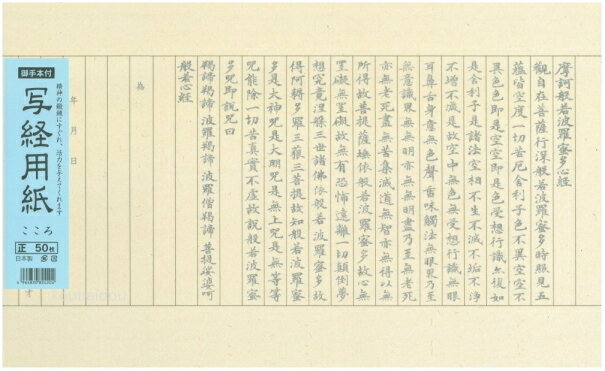 摩訶般若波羅蜜多心經
觀自在菩薩行深般若波羅蜜多時照見五
蘊皆空度一切苦厄舍利子色不異空空不
異色色即是空空即是色受想行識亦復如
是舍利子是諸法空相不生不滅不垢不淨
不增不減是故空中無色無受想行識無眼
耳鼻舌身意無色聲香味觸法無眼界乃至
無意識界無無明亦無無明盡乃至無老死
亦無老死盡無苦集滅道無智亦無得以無
所得故菩提薩埵依般若波羅蜜多故心無
罣礙無罣礙故無有恐怖遠離一切顛倒夢
想究竟涅槃三世諸佛依般若波羅蜜多故
得阿耨多羅三藐三菩提故知般若波羅蜜
多是大神呪是大明呪是無上呪是無等等
呪能除一切苦真實不虛故說般若波羅蜜
多呪即說呪曰
羯諦羯諦 波羅羯諦 波羅僧羯諦 菩提娑婆訶
般若心經
為
年 月 日
御手本付
精神の鍛錬にすぐれ、活力を与えてくれます
写経用紙
こころ
正 50枚
日本製